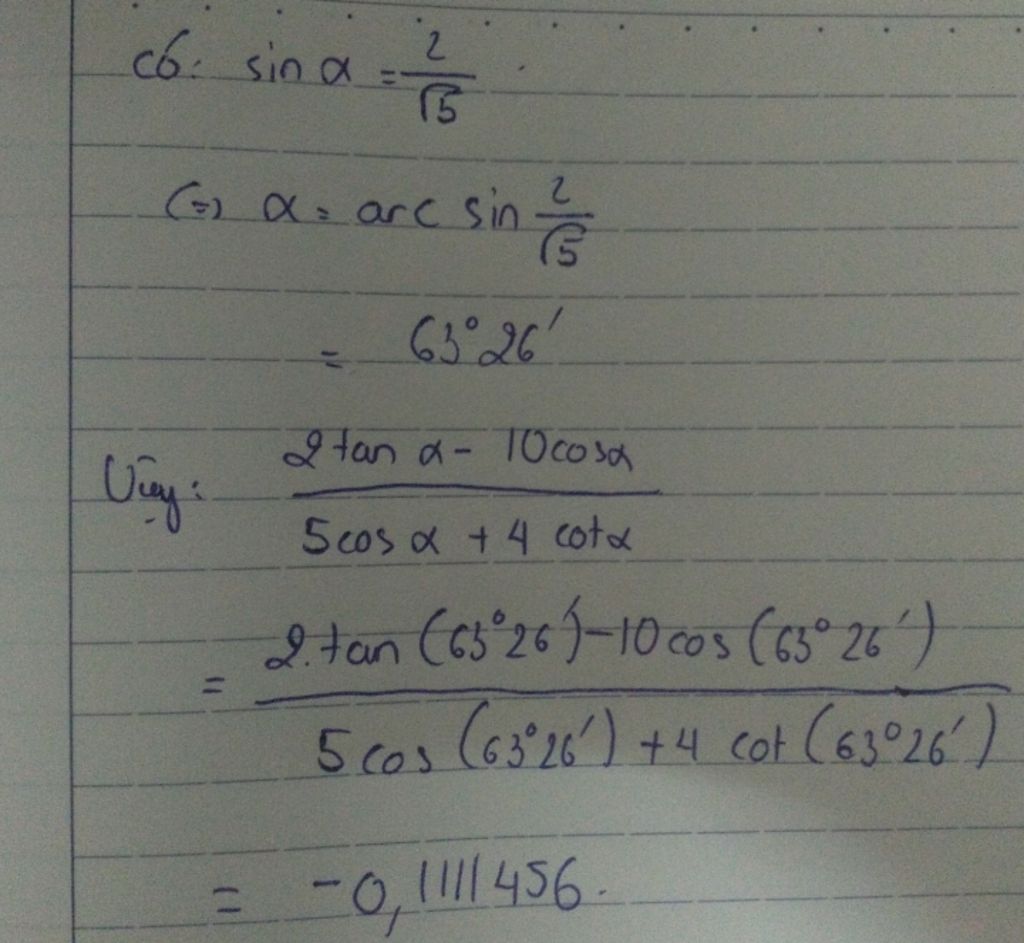 có: sin α = 2/√5.
(=) α = arc sin 2/√5
= 63°26'
Vậy: (2 tan α - 10 cosα)/(5 cos α + 4 cotα)
= (2. tan (63°26') - 10 cos (63°26'))/(5 cos (63°26') + 4 cot (63°26'))
= -0,1111456.